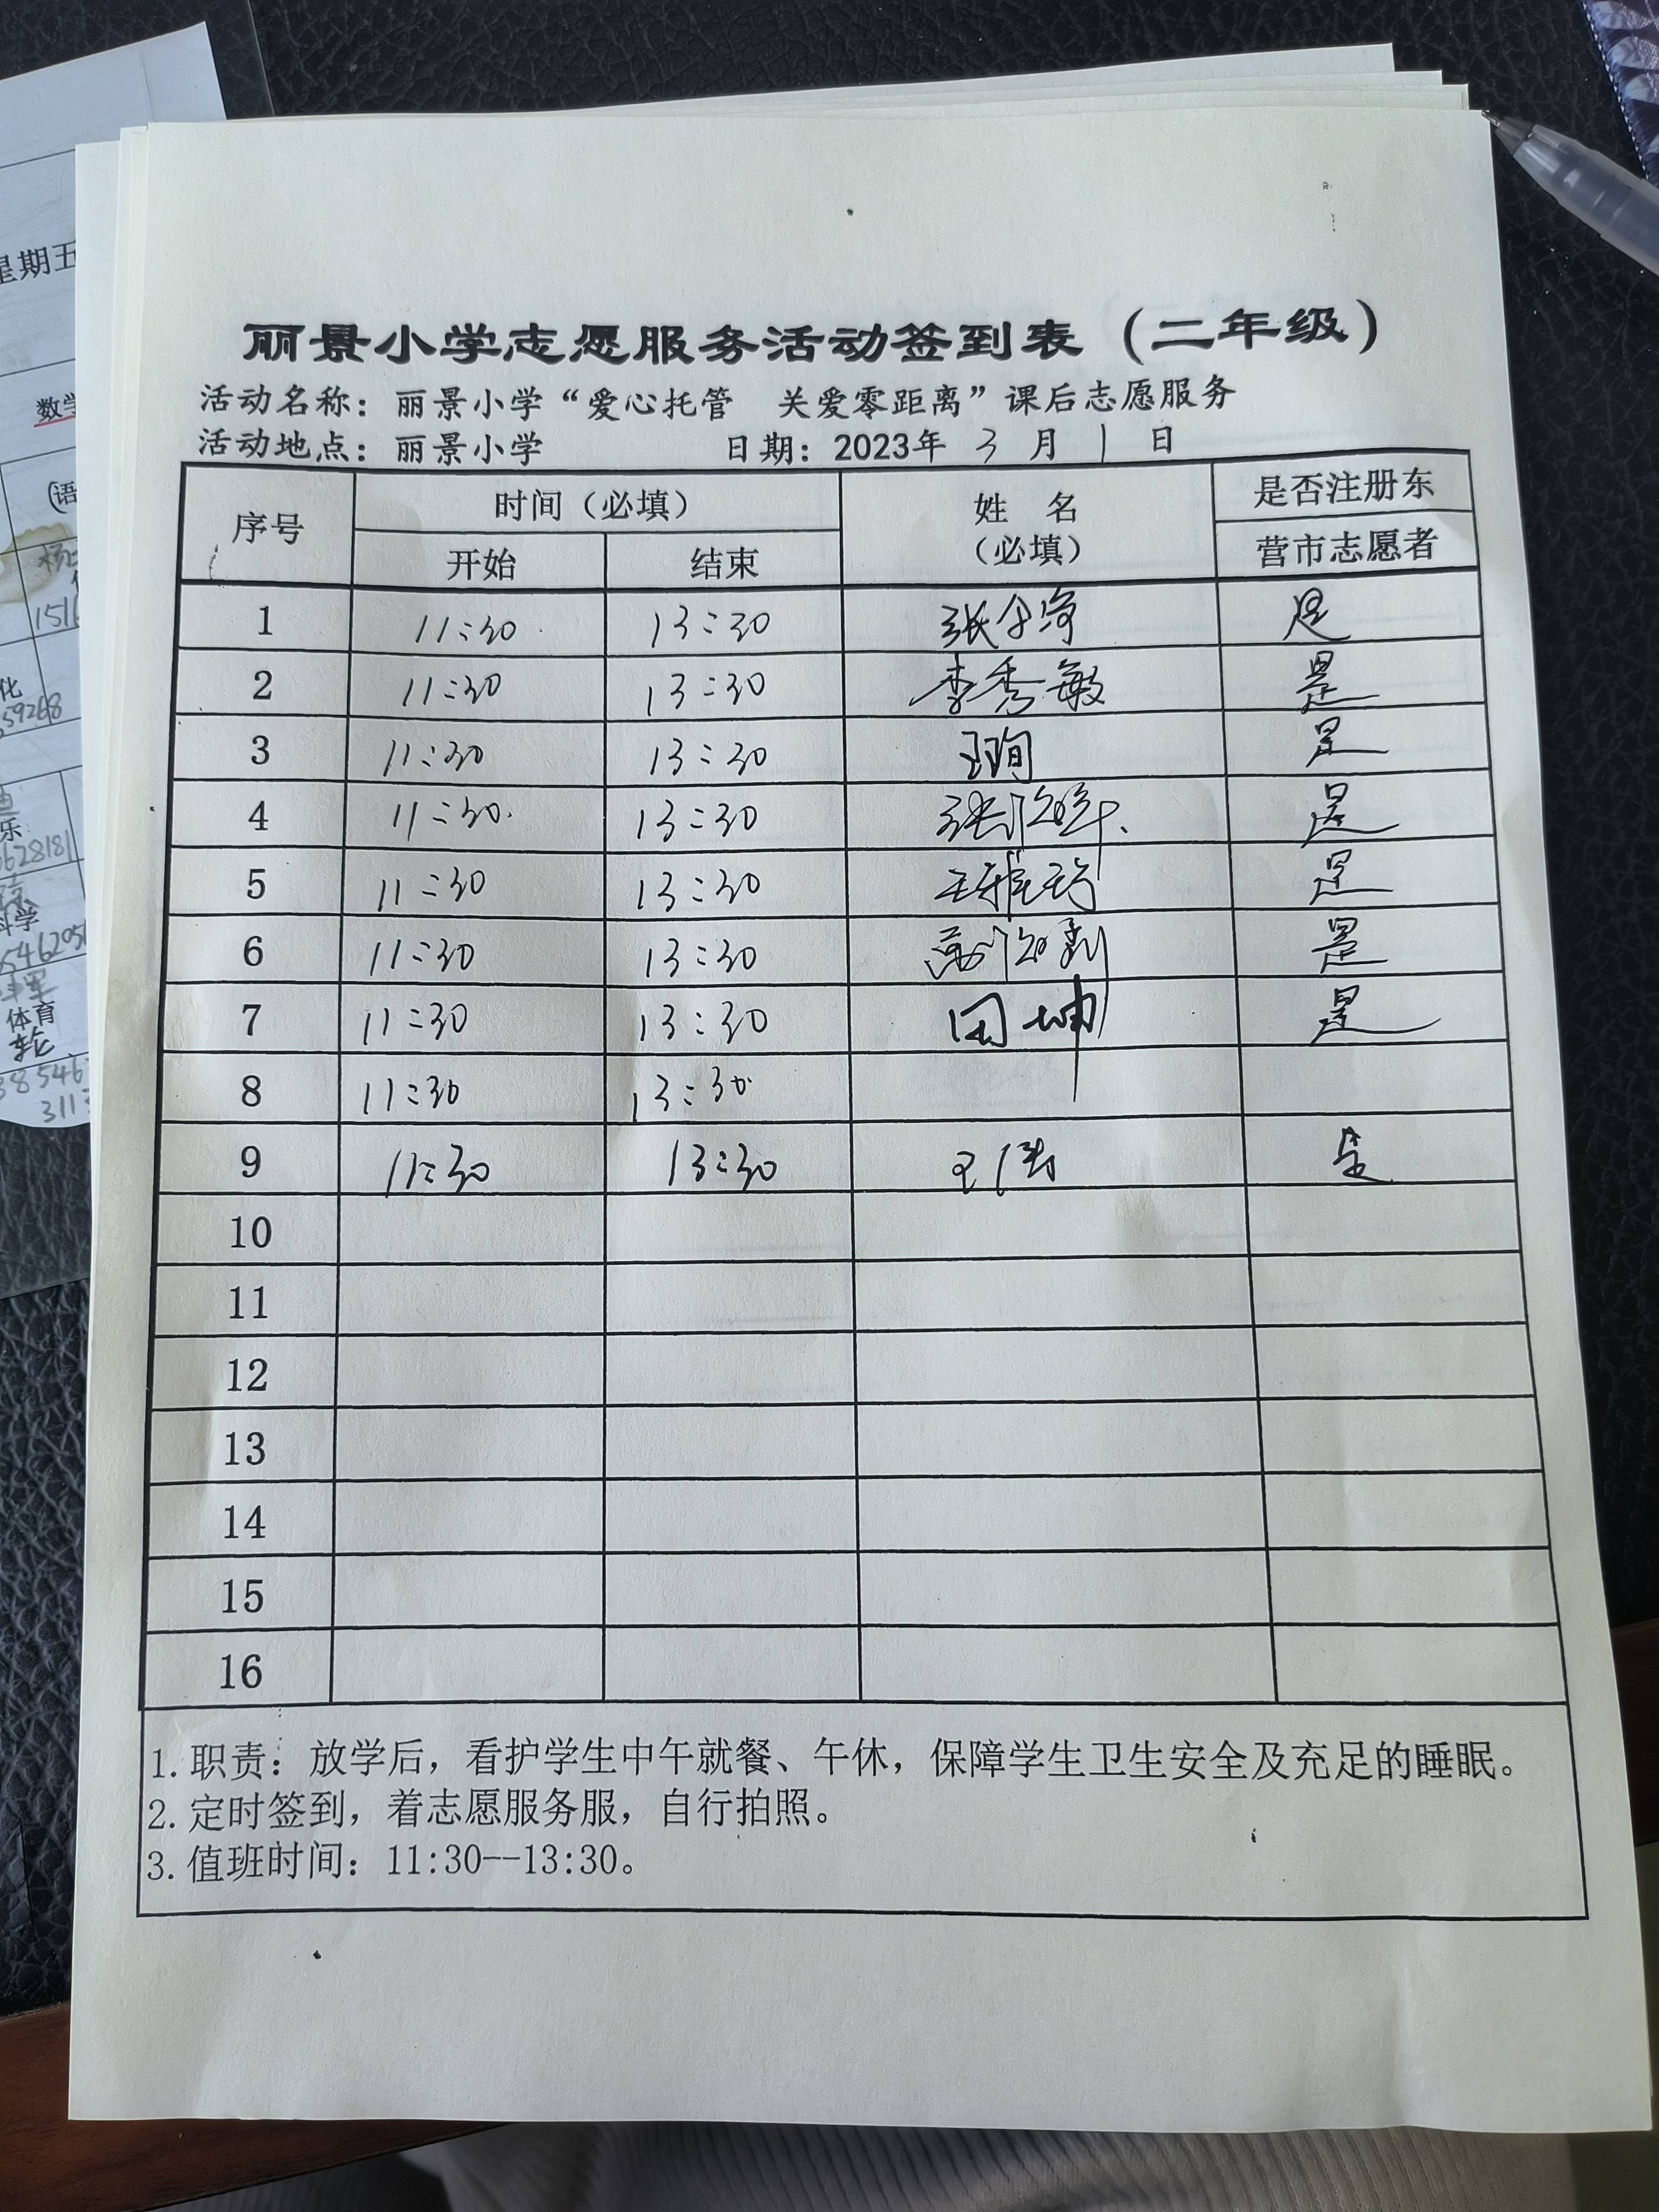 丽景小学志愿服务活动签到表（二年级）
活动名称：丽景小学“爱心托管 关爱零距离”课后志愿服务
活动地点：丽景小学 日期：2023年 3 月 1 日
序号 时间（必填） 姓 名（必填） 是否注册东营市志愿者
开始 结束
1 11:30 13:30 是
2 11:30 13:30 李秀敏 是
3 11:30 13:30 王珣 是
4 11:30 13:30 是
5 11:30 13:30 是
6 11:30 13:30 是
7 11:30 13:30 田坤 是
8 11:30 13:30
9 11:30 13:30 王倩 是
10
11
12
13
14
15
16
1.职责：放学后，看护学生中午就餐、午休，保障学生卫生安全及充足的睡眠。
2.定时签到，着志愿服务服，自行拍照。
3.值班时间：11:30--13:30。
星期五
数学
(语
1516
化
59268
乐
6628181
科学
体育
38546
311